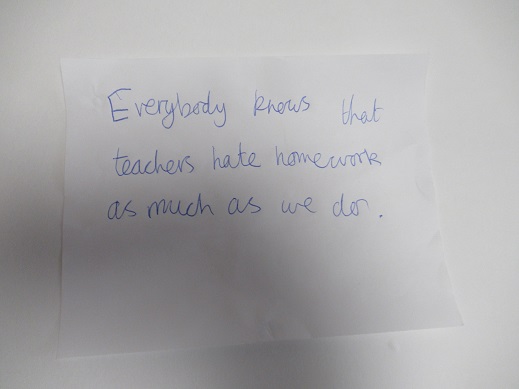 Everybody knows that
teachers hate homework
as much as we do.